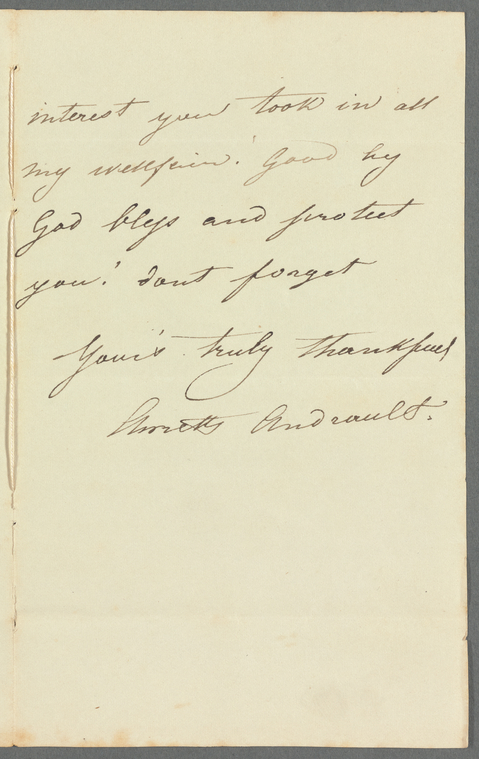 interest you took in all
my wellfair! Good by
God bless and protect
you! dont forget
Your's truly thankfuul
Andrault.